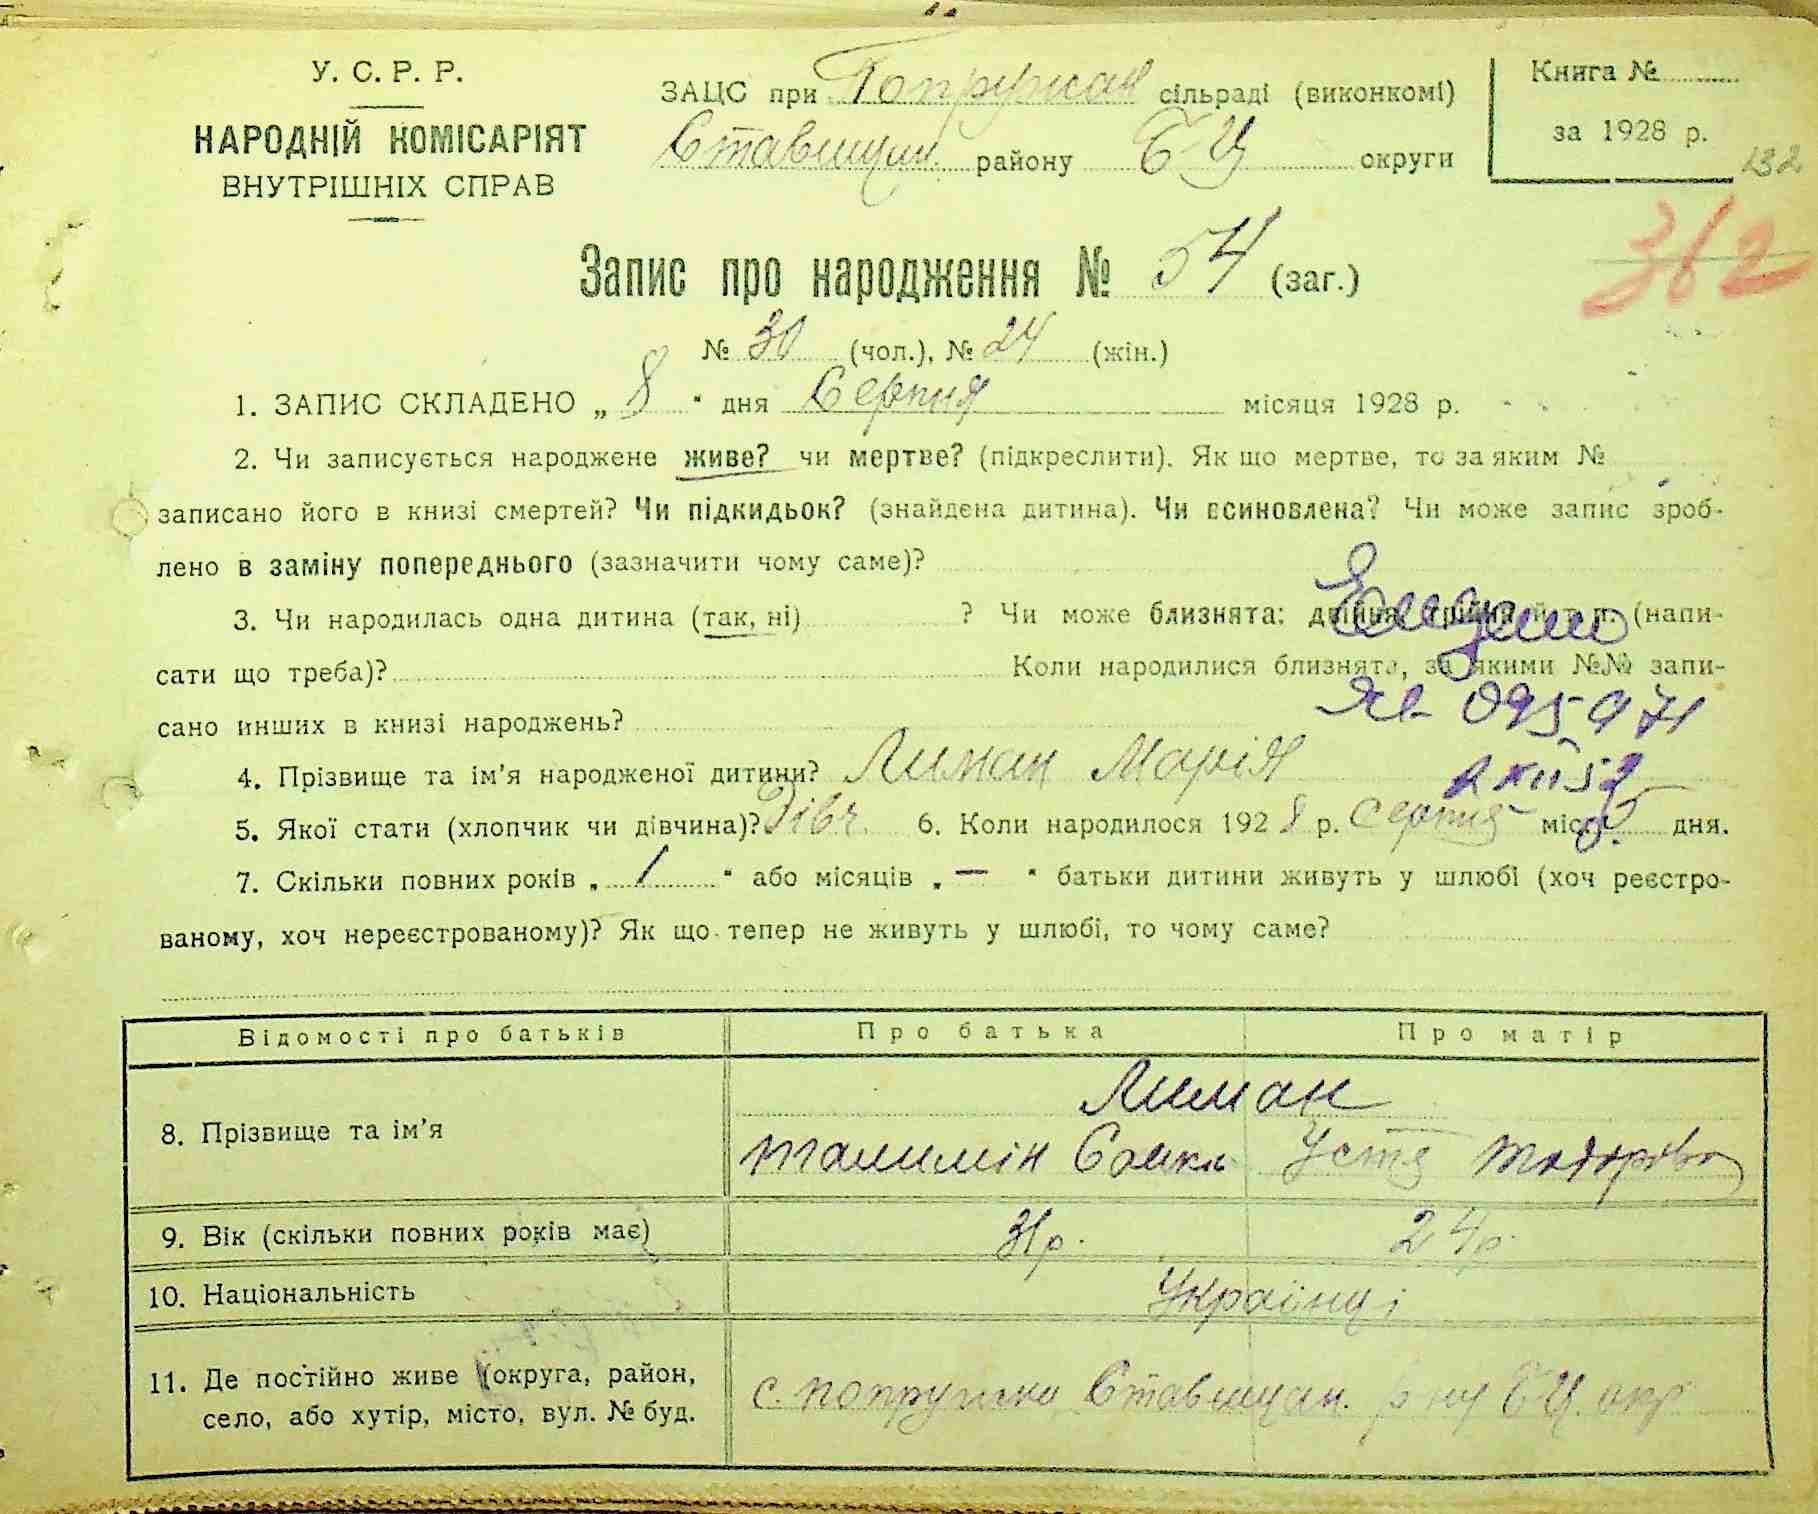 У. С. Р. Р.
НАРОДНІЙ КОМІСАРІЯТ
ВНУТРІШНІХ СПРАВ
ЗАЦС при Попружан сільраді (виконкомі)
Ставищан. району Б-Ц округи
Книга №
за 1928 р.
132
312
Запис про народження № 54 (заг.)
№ 30 (чол.), № 24 (жін.)
1. ЗАПИС СКЛАДЕНО „ 8 " дня Серпня місяця 1928 р.
2. Чи записується народжене живе? чи мертве? (підкреслити). Як що мертве, то за яким №
записано його в книзі смертей? Чи підкидьок? (знайдена дитина). Чи всиновлена? Чи може запис зроб-
лено в заміну попереднього (зазначити чому саме)?
3. Чи народилась одна дитина (так, ні) ? Чи може близнята: двійня, трійня й т. п. (напи-
сати що треба)? Коли народилися близнята, за якими №№ запи-
сано инших в книзі народжень?
Видано
095971
2 XII 52
4. Прізвище та ім'я народженої дитини? Лиман Марія
5. Якої стати (хлопчик чи дівчина)? Дівч. 6. Коли народилося 1928 р. Серпня міс. 5 дня.
7. Скільки повних років „ 1 " або місяців „ — " батьки дитини живуть у шлюбі (хоч реєстро-
ваному, хоч нереєстрованому)? Як що тепер не живуть у шлюбі, то чому саме?
Відомості про батьків Про батька Про матір
Лиман
8. Прізвище та ім'я Устя Тодорівна
9. Вік (скільки повних років має) 31р. 24р.
10. Національність Українці
11. Де постійно живе (округа, район,
село, або хутір, місто, вул. № буд.
с. Попружна Ставищан. р-ну БЦ. окр